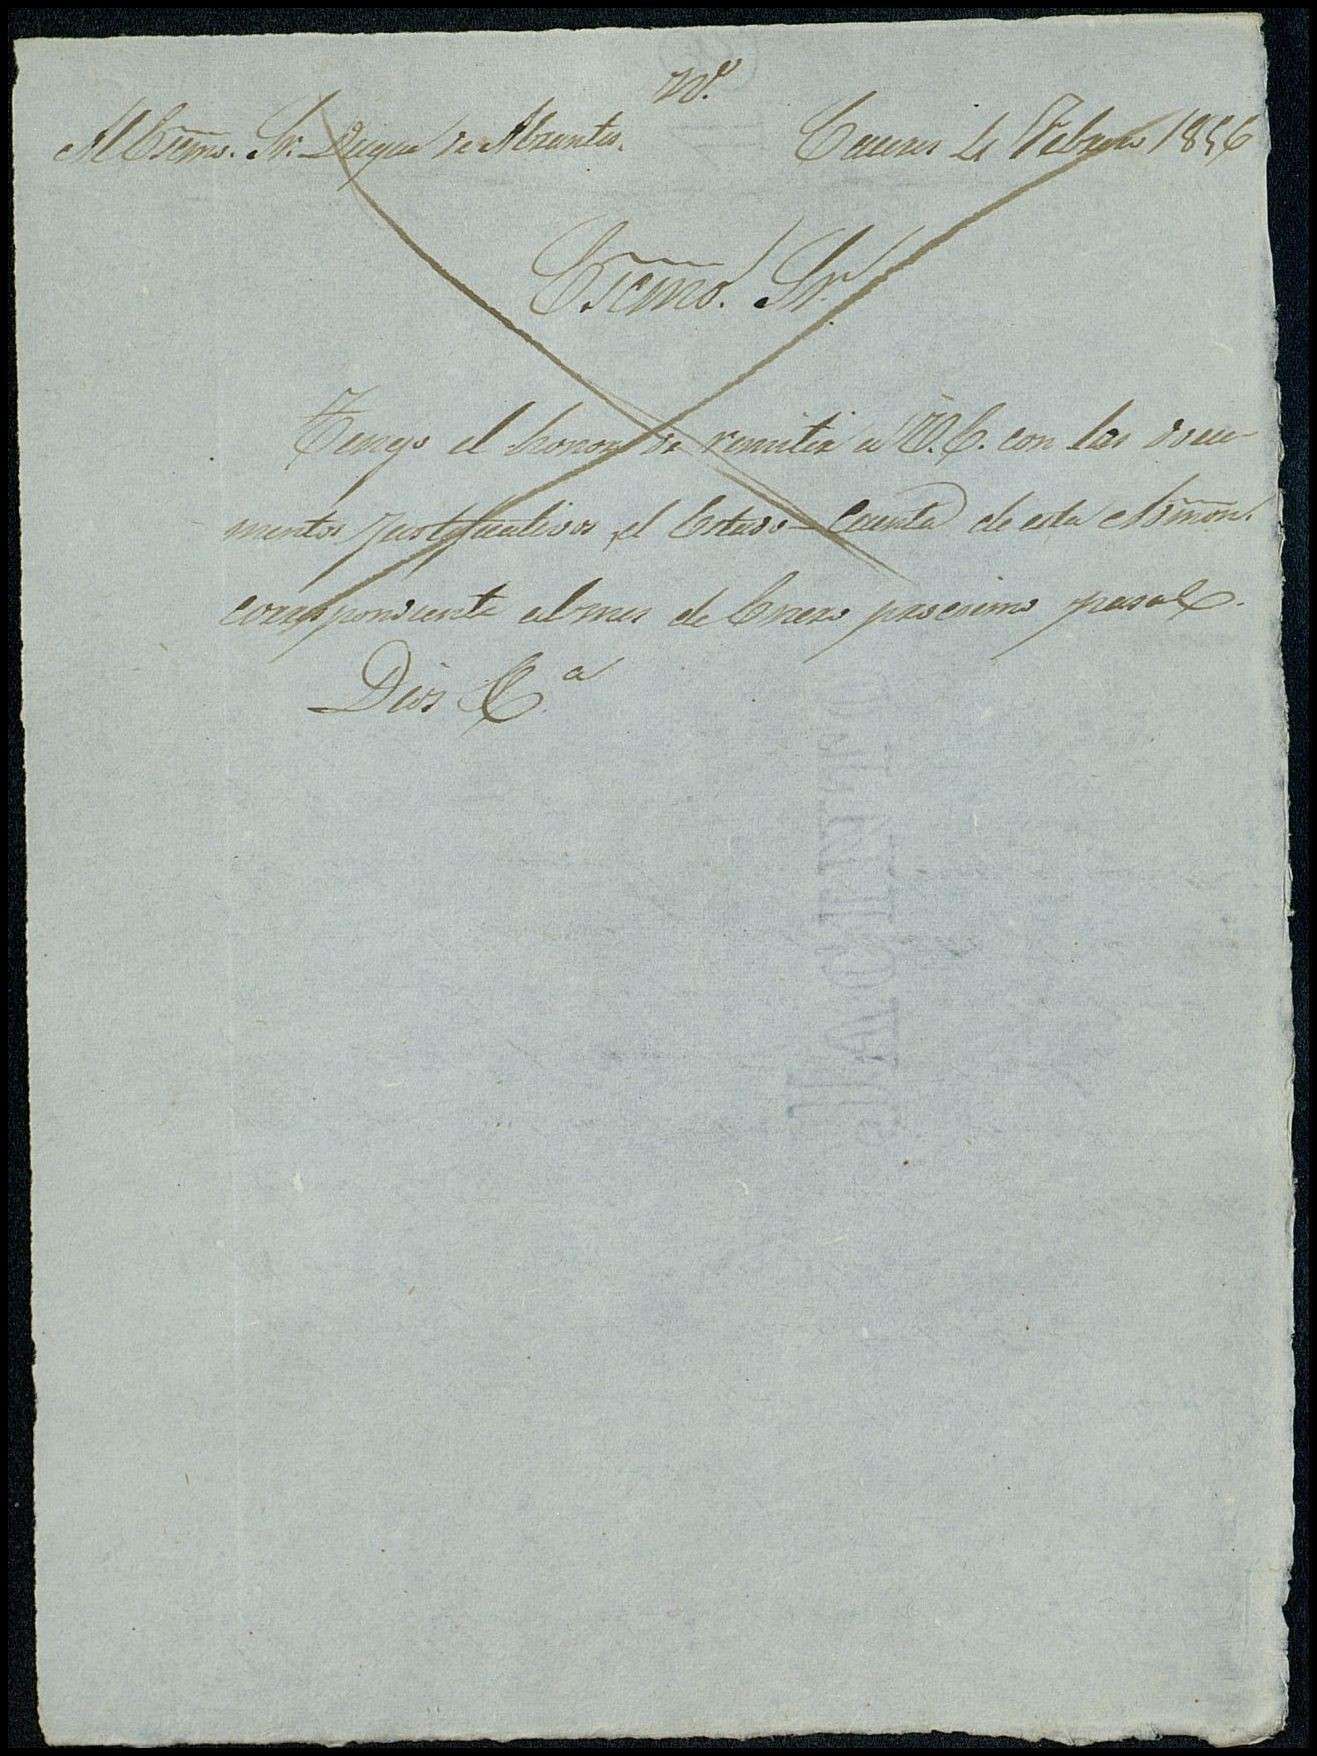 Nº.
Al Escmo. Sr. Duque de Abrantes. Caceres 4 Febrero 1856
Escmo. Sr.
Tengo el honor de remitir a V.E. con los docu-
mentos justificativos, el Estado-Cuenta de esta Admon.
correspondiente al mes de Enero procsimo pasado.
Dios &a